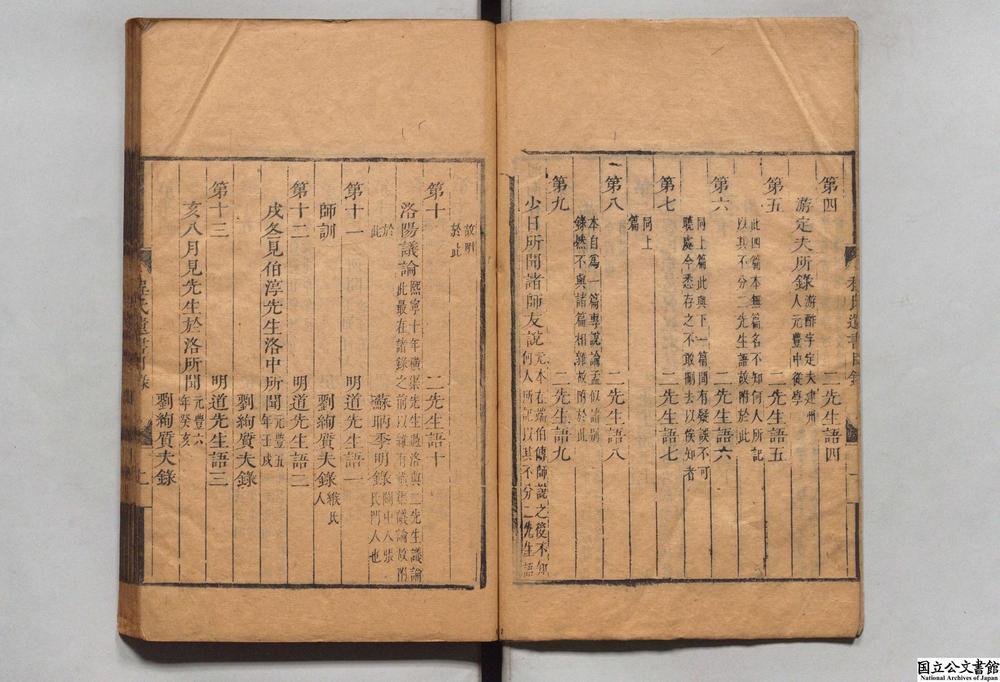 第四
二先生語四
游定夫所錄
游酢字定夫建州
人元豐中從學
第五
二先生語五
此四篇本無篇名不知何人所記
以其不分二先生語故附於此
第六
二先生語六
同上篇此與下一篇間有疑誤不可
曉處今悉存之不敢刪去以俟知者
第七
二先生語七
同上
篇
第八
二先生語八
本自為一篇專說論孟似請別
錄㮣不與諸篇相雜故附於此
第九
二先生語九
少日所聞諸師友說
元本在端伯傳師說之後不知
何人所記以其不分二先生語
故附
於此
第十
二先生語十
洛陽議論
熙寧十年橫渠先生過洛與二先生議論
此最在諸錄之前以雜有橫渠議論故附
於
此
蘇昞季明錄
關中人張
氏門人也
第十一
明道先生語一
師訓
劉絢質夫錄
緱氏
人
第十二
明道先生語二
戌冬見伯淳先生洛中所聞
元豐五
年壬戌
劉絢質夫錄
第十三
明道先生語三
亥八月見先生於洛所聞
元豐六
年癸亥
劉絢質夫錄
程氏遺書目錄
国立公文書館
National Archives of Japan